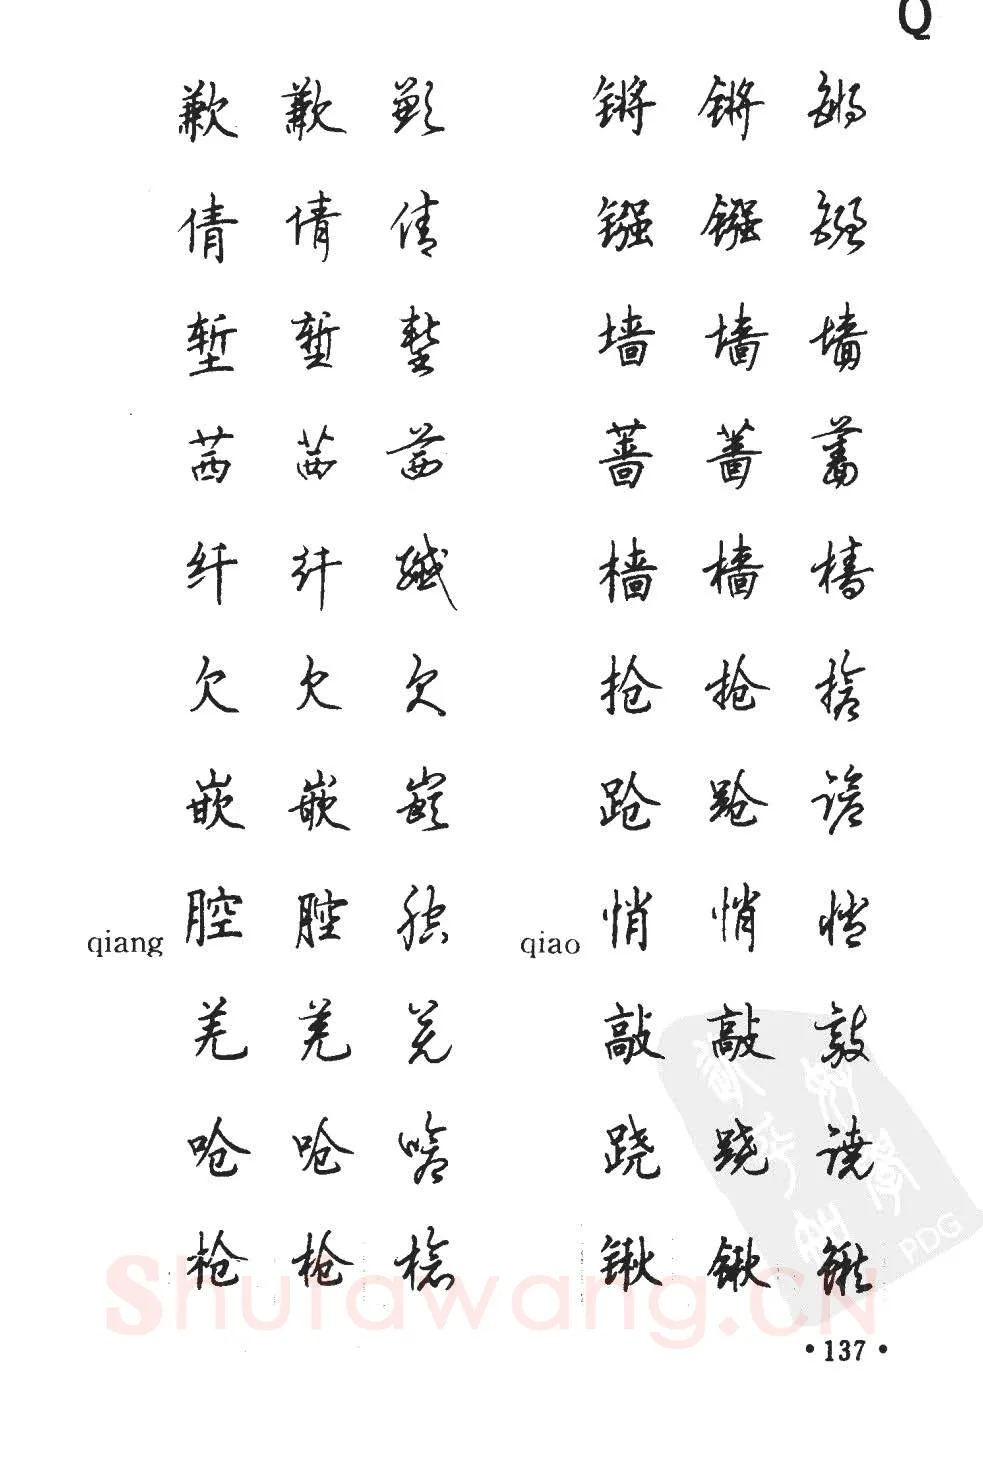 Q
歉 歉 歉
倩 倩 倩
堑 堑 堑
茜 茜 茜
纤 纤 纖
欠 欠 欠
嵌 嵌 嵌
qiang 腔 腔 腔
羌 羌 羌
呛 呛 嗆
枪 枪 槍
锵 锵 鏘
镪 镪 鏹
墙 墙 墻
蔷 蔷 薔
樯 樯 檣
抢 抢 搶
跄 跄 蹌
qiao 悄 悄 悄
敲 敲 敲
跷 跷 蹺
锹 锹 鍬
·137·
Shufawang.CN
PDG